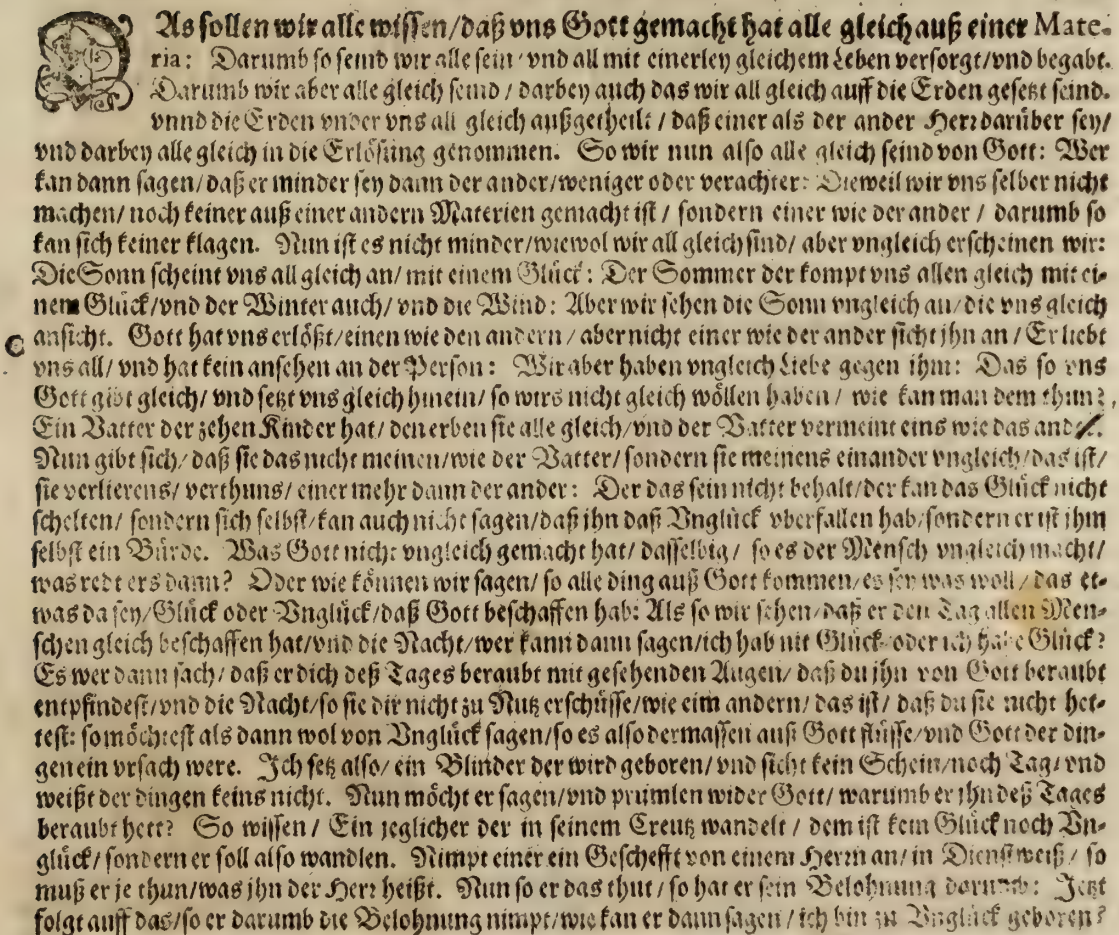 DAs sollen wir alle wissen/daß vns Gott gemacht hat alle gleich auß einer Mate-
ria: Darumb so seind wir alle sein/vnd all mit einerley gleichem Leben versorgt/vnd begabt.
Darumb wir aber alle gleich seind/darbey auch das wir all gleich auff die Erden gesetzt seind.
vnnd die Erden vnder vns all gleich außgetheilt/daß einer als der ander Herr darüber sey/
vnd darbey alle gleich in die Erlösung genommen. So wir nun also alle gleich seind von Gott: Wer
kan dann sagen/daß er minder sey dann der ander/weniger oder verachter: Dieweil wir vns selber nicht
machen/noch keiner auß einer andern Materien gemacht ist/sondern einer wie der ander/darumb so
kan sich keiner klagen. Nun ist es nicht minder/wiewol wir all gleich sind/aber vngleich erscheinen wir:
Die Sonn scheint vns all gleich an/mit einem Glück: Der Sommer der kompt vns allen gleich mit ei-
nem Glück/vnd der Winter auch/vnd die Wind: Aber wir sehen die Sonn vngleich an/die vns gleich
C ansicht. Gott hat vns erlößt/einen wie den andern/aber nicht einer wie der ander sicht jhn an/Er liebt
vns all/vnd hat kein ansehen an der Person: Wir aber haben vngleich Liebe gegen jhm: Das so vns
Gott gibt gleich/vnd setzt vns gleich hinein/so wirs nicht gleich wöllen haben/wie kan man dem thun?
Ein Vatter der zehen Kinder hat/den erben sie alle gleich/vnd der Vatter vermeint eins wie das ander.
Nun gibt sich/daß sie das nicht meinen/wie der Vatter/sondern sie meinens einander vngleich/das ist/
sie verlierens/verthuns/einer mehr dann der ander: Der das sein nicht behalt/der kan das Glück nicht
schelten/sondern sich selbst/kan auch nicht sagen/daß jhn daß Vnglück vberfallen hab/sondern er ist jhm
selbst ein Bürde. Was Gott nicht vngleich gemacht hat/dasselbig/so es der Mensch vngleich macht/
was redt ers dann? Oder wie können wir sagen/so alle ding auß Gott kommen/es sey was woll/das et-
was da sey/Glück oder Vnglück/daß Gott beschaffen hab: Als so wir sehen/daß er den Tag allen Men-
schen gleich beschaffen hat/vnd die Nacht/wer kann dann sagen/ich hab nit Glück oder ich habe Glück?
Es wer dann sach/daß er dich deß Tages beraubt mit gesehenden Augen/daß du jhn von Gott beraubt
entpfindest/vnd die Nacht/so sie dir nicht zu Nutz erschüsse/wie eim andern/das ist/daß du sie nicht het-
test: so möchtest als dann wol von Vnglück sagen/so es also dermassen auß Gott flüsse/vnd Gott der din-
gen ein vrsach were. Ich setz also/ein Blinder der wird geboren/vnd sicht kein Schein/noch Tag/vnd
weißt der dingen keins nicht. Nun möcht er sagen/vnd prümlen wider Gott/warumb er jhn deß Tages
beraubt hett? So wissen/Ein jeglicher der in seinem Creutz wandelt/dem ist kein Glück noch Vn-
glück/sondern er soll also wandlen. Nimpt einer ein Gescheffe von einem Herrn an/in Dienstweiß/so
muß er je thun/was jhn der Herr heißt. Nun so er das thut/so hat er sein Belohnung darumb: Jetzt
folgt auff das/so er darumb die Belohnung nimpt/wie kan er dann sagen/ich bin zu Vnglück geboren?